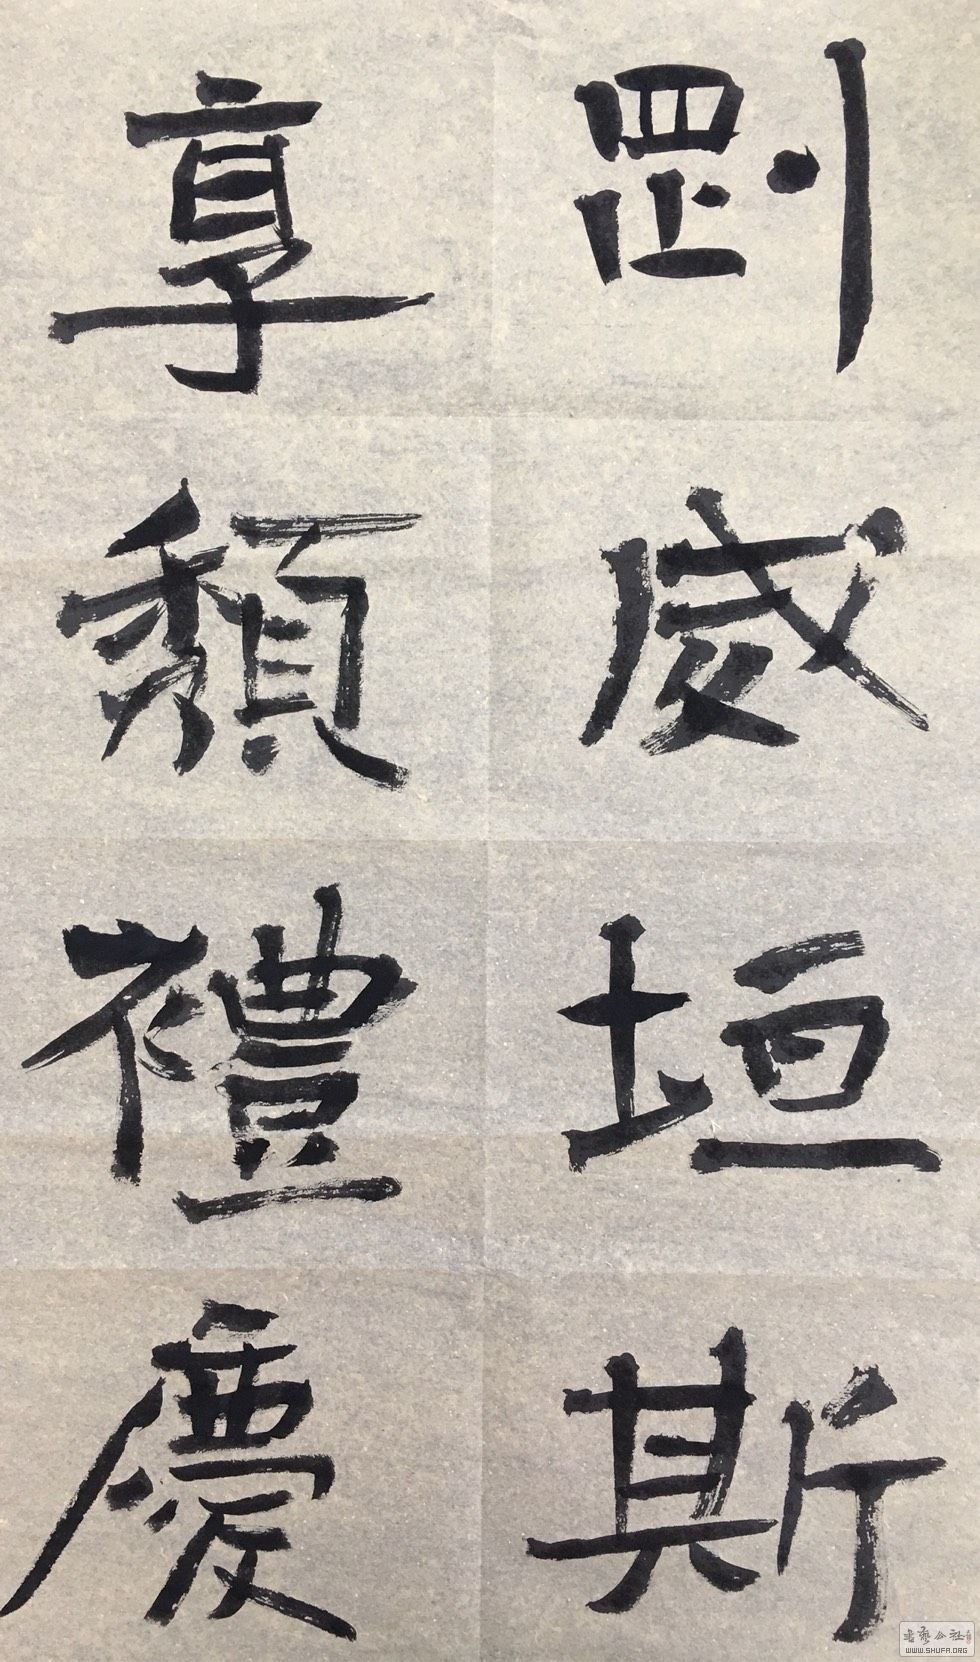 剛威垣斯
享頹禮慶
书艺公社
WWW.SHUFA.ORG